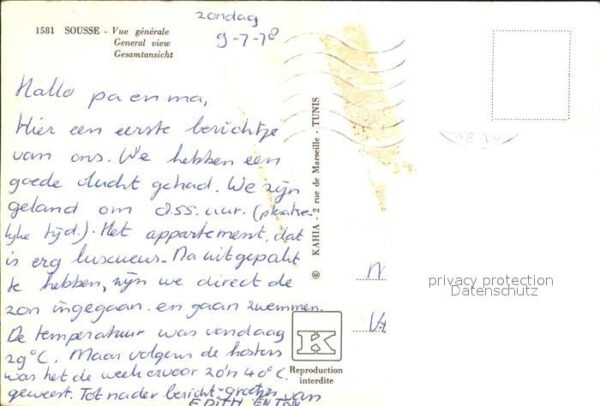 1581 SOUSSE - Vue générale
General view
Gesamtansicht
zondag
9-7-78
Hallo pa en ma,
Hier een eerste berichtje
van ons. We hebben een
goede vlucht gehad. We zijn
geland om 855 uur. (plaatse-
lijke tijd.). Het appartement, dat
is erg luxueus. Na uitgepakt
te hebben, zijn we direct de
zon ingegaan en gaan zwemmen.
De temperatuur was vandaag
29°C. Maar volgens de hostess
was het de week ervoor zo'n 40°C.
geweest. Tot nader bericht. groetjes van
EDITH EN TON
© KAHIA - 2 rue de Marseille - TUNIS
K
Reproduction
interdite
privacy protection
Datenschutz